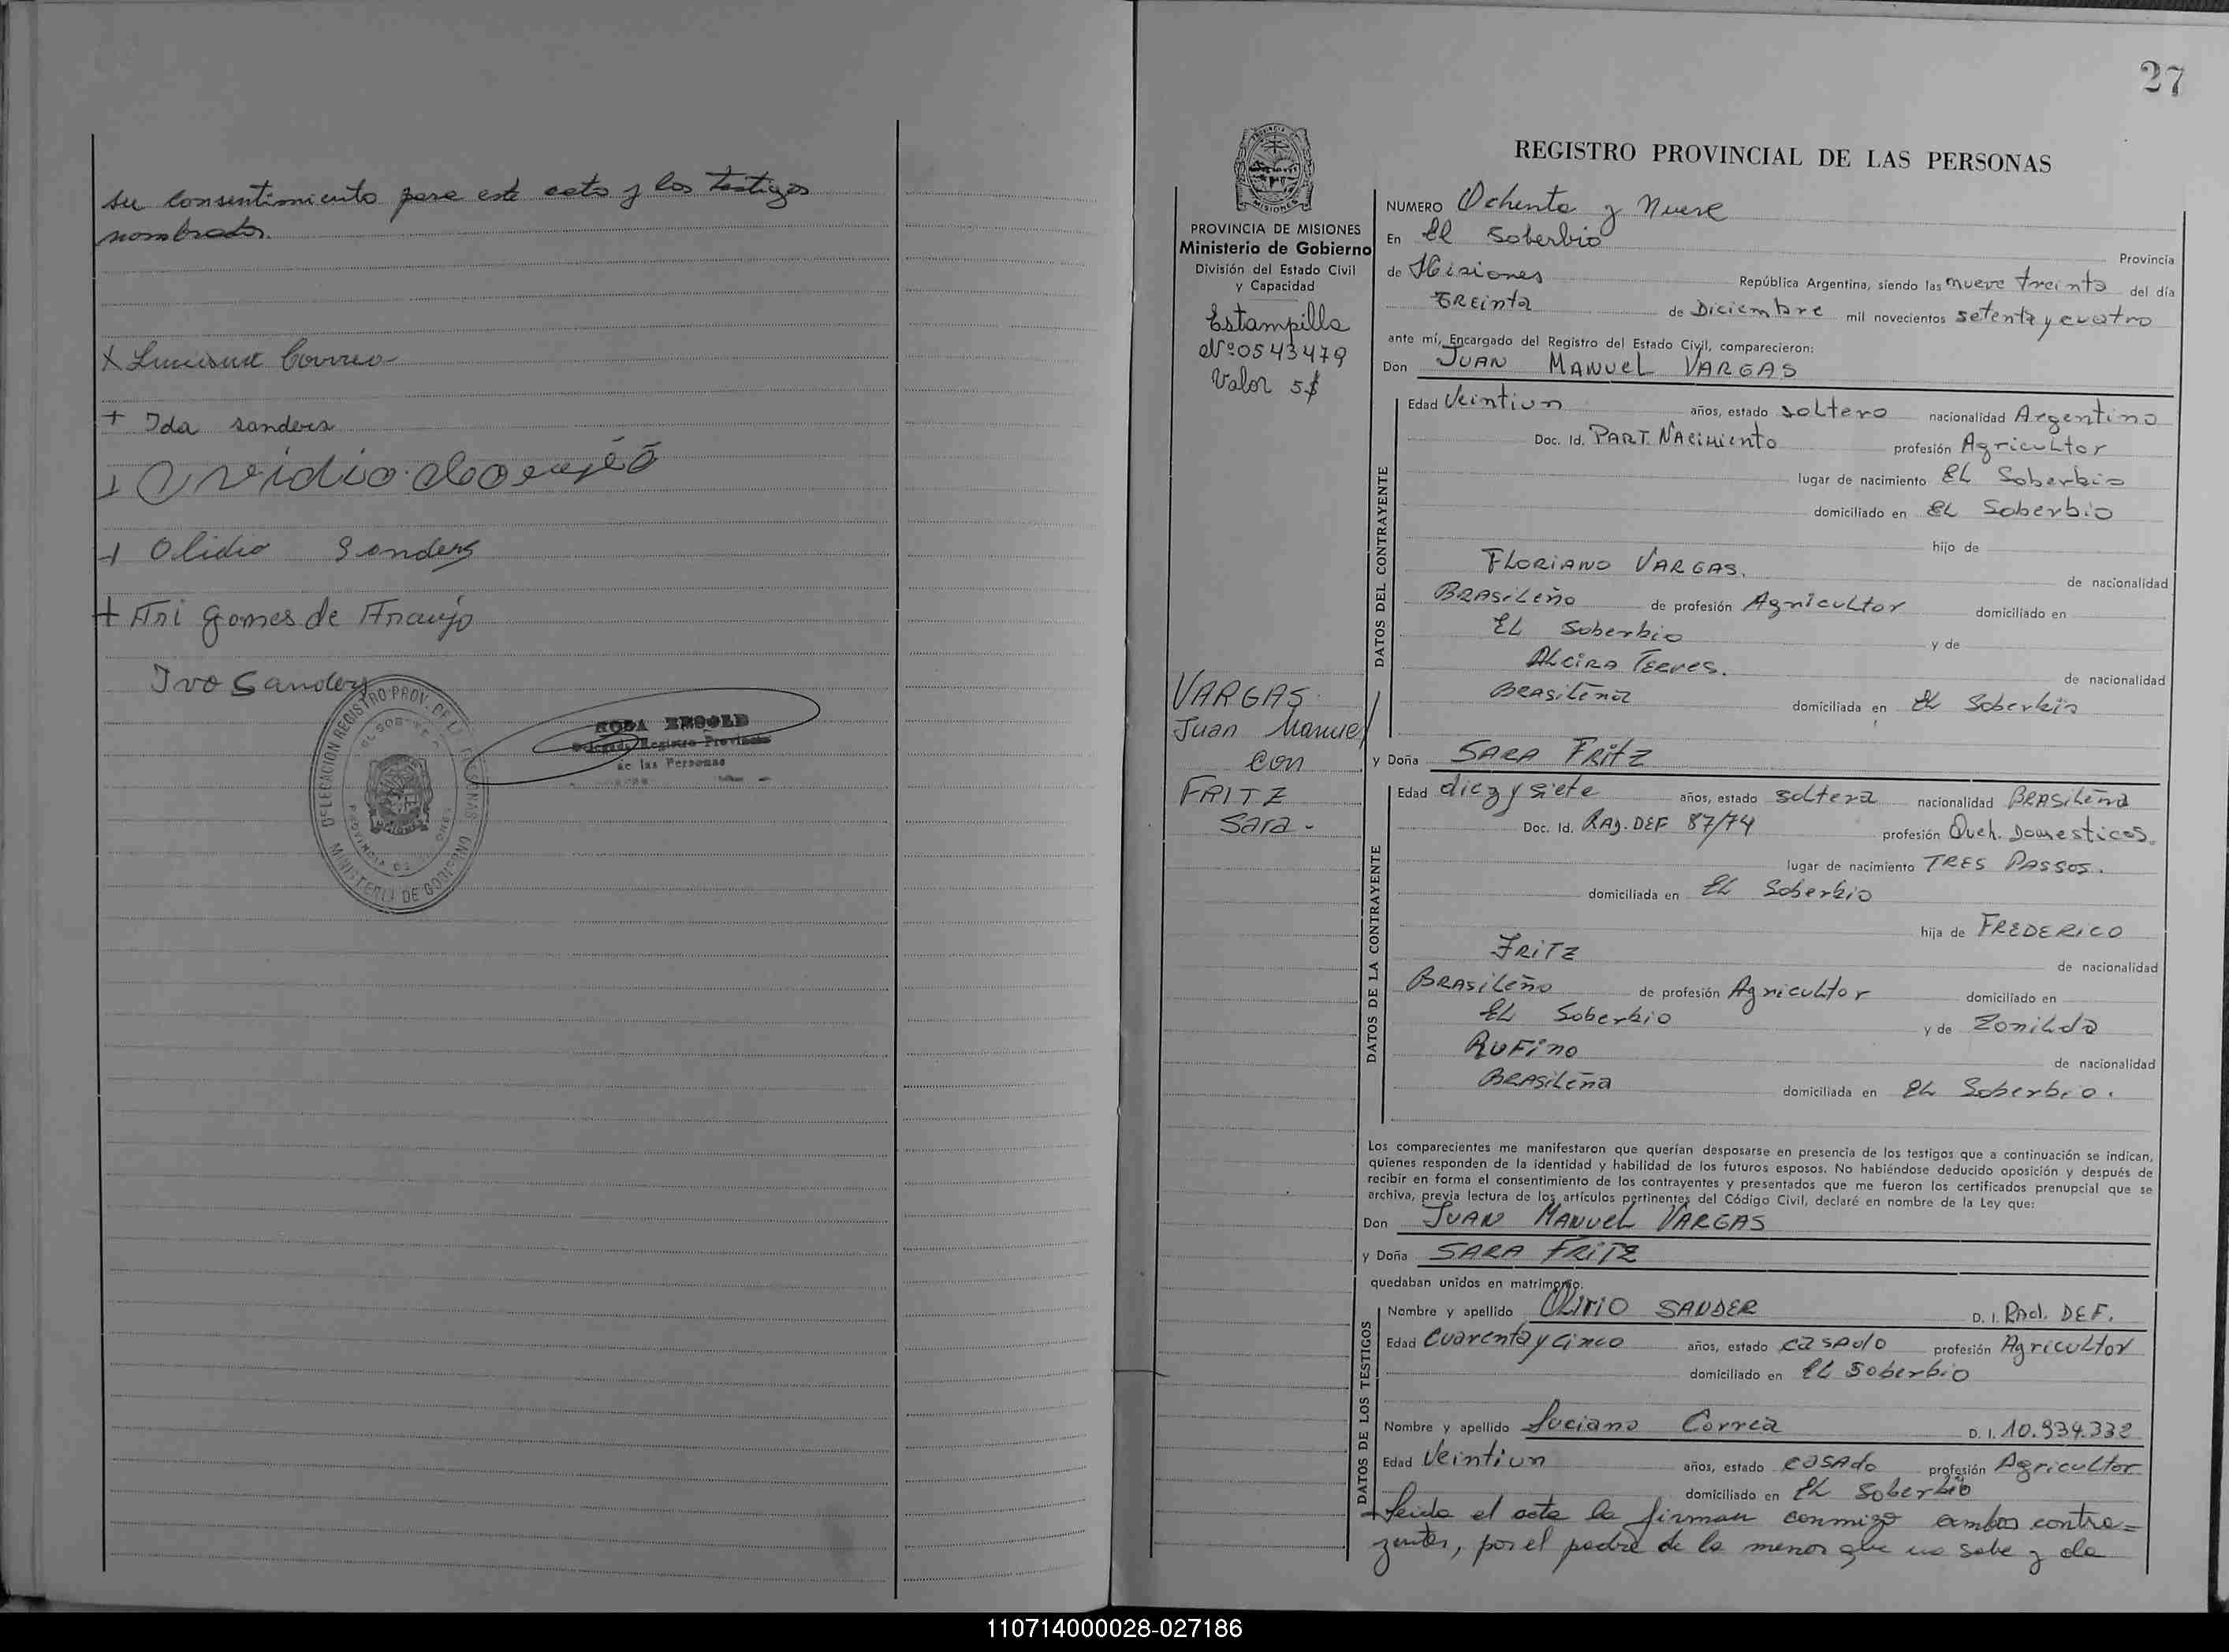 su consentimiento para este acto y los testigos
nombrados.
X Luciano Correa
+ Ida sanders
+ Ovidio
+ Olidio Sanders
+ Ari gomes de Araujo
Ivo Sanders
DELEGACION REGISTRO PROV. DE LAS PERSONAS
MINISTERIO DE GOBIERNO
PROVINCIA DE MISIONES
Delegada Registro Provincial
de las Personas
27
PROVINCIA DE MISIONES
Ministerio de Gobierno
División del Estado Civil
y Capacidad
Estampilla
Nº 0543479
Valor 5$
VARGAS
Juan Manuel
con
FRITZ
Sara -
REGISTRO PROVINCIAL DE LAS PERSONAS
NUMERO Ochenta y Nueve
En El Soberbio Provincia
de Misiones República Argentina, siendo las nueve treinta del día
TREinta de Diciembre mil novecientos setenta y cuatro
ante mí, Encargado del Registro del Estado Civil, comparecieron:
Don JUAN MANUEL VARGAS
DATOS DEL CONTRAYENTE
Edad Veintiun años, estado soltero nacionalidad Argentino
Doc. Id. PART. NACIMIENTO profesión Agricultor
lugar de nacimiento EL Soberbio
domiciliado en EL Soberbio
hijo de
FLORIANO VARGAS. de nacionalidad
BRASILEÑO de profesión Agricultor domiciliado en
EL Soberbio y de
ALCIRA de nacionalidad
BRASILEÑA domiciliada en EL Soberbio
y Doña SARA FRITZ
DATOS DE LA CONTRAYENTE
Edad diez y siete años, estado soltera nacionalidad BRASILEÑA
Doc. Id. RAD. DEF 87/74 profesión Queh. Domesticos.
lugar de nacimiento TRES PASSOS.
domiciliada en EL Soberbio
hija de FREDERICO
FRITZ de nacionalidad
BRASILEÑO de profesión Agricultor domiciliado en
EL Soberbio y de Zonilda
RUFINO de nacionalidad
BRASILEÑA domiciliada en EL Soberbio.
Los comparecientes me manifestaron que querían desposarse en presencia de los testigos que a continuación se indican,
quienes responden de la identidad y habilidad de los futuros esposos. No habiéndose deducido oposición y después de
recibir en forma el consentimiento de los contrayentes y presentados que me fueron los certificados prenupcial que se
archiva, previa lectura de los artículos pertinentes del Código Civil, declaré en nombre de la Ley que:
Don JUAN MANUEL VARGAS
y Doña SARA FRITZ
quedaban unidos en matrimonio.
DATOS DE LOS TESTIGOS
Nombre y apellido SANDER D. I. Rad. DEF.
Edad Cuarenta y cinco años, estado casado profesión Agricultor
domiciliado en EL Soberbio
Nombre y apellido Luciano Correa D. I. 10.934.332
Edad Veintiun años, estado casado profesión Agricultor
domiciliado en EL Soberbio
Leida el acta la firman conmigo ambos contra=
yentes, por el padre de la menor que no sabe y da
110714000028-027186